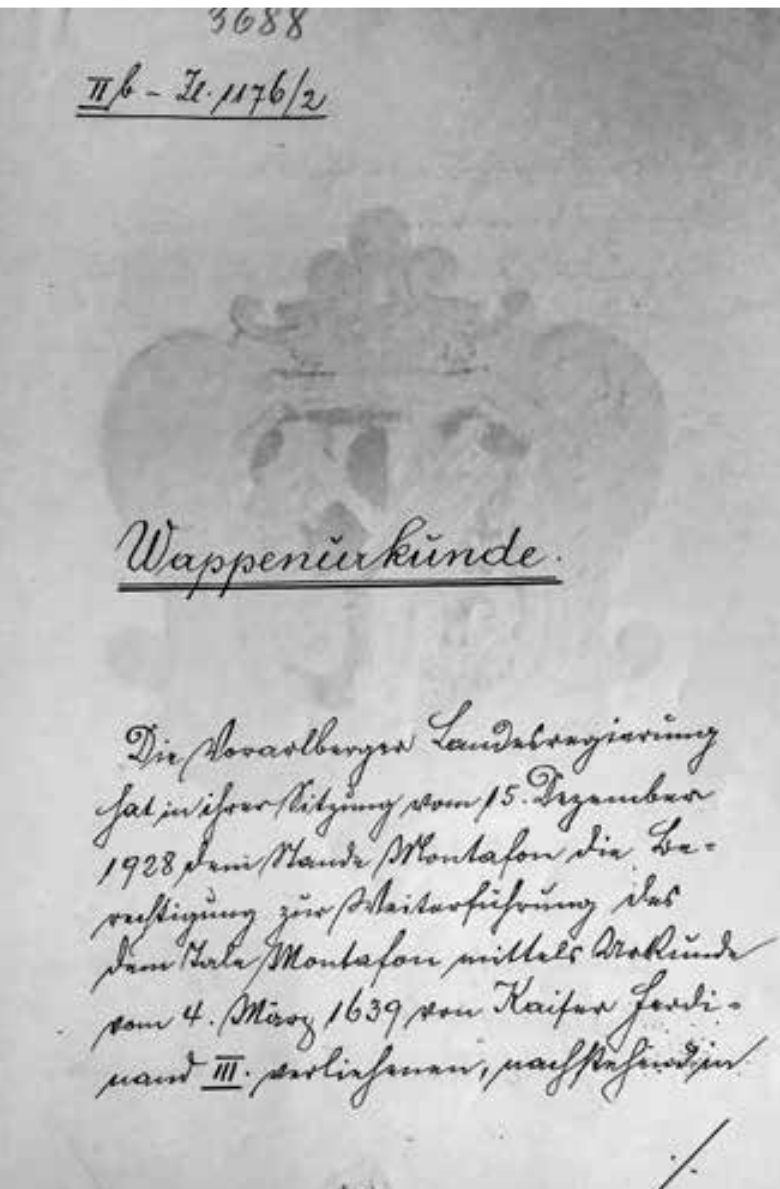 3688
IIb - Zl. 1176/2
Wappenurkunde.
Die Vorarlberger Landesregierung
hat in ihrer Sitzung vom 15. Dezember
1928 dem Stande Montafon die Be-
rechtigung zur Weiterführung des
dem Tale Montafon mittels Urkunde
vom 4. März 1639 von Kaiser Ferdi-
nand III. verliehenen, nachstehend in
./.